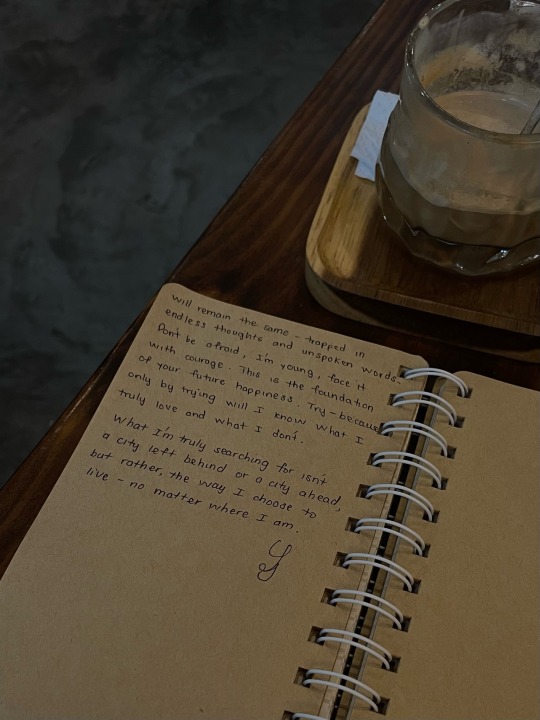 will remain the same - trapped in
endless thoughts and unspoken words.
Don't be afraid, I'm young, face it
with courage. This is the foundation
of your future happiness. Try - because
only by trying will I know what I
truly love and what I don't.
What I'm truly searching for isn't
a city left behind or a city ahead,
but rather, the way I choose to
live - no matter where I am.